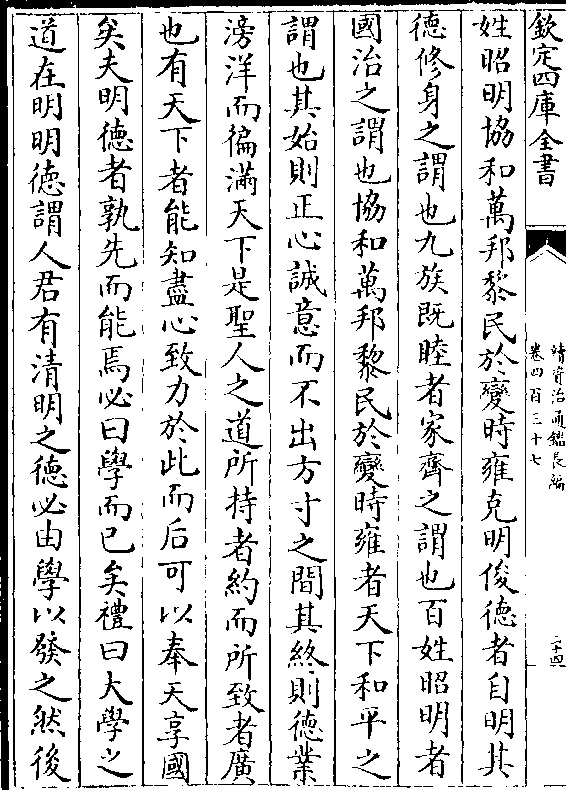 欽定四庫全書
續資治通鑑長編
卷四百三十七
二十四
姓昭明協和萬邦黎民於變時雍克明俊德者自明其
德修身之謂也九族既睦者家齊之謂也百姓昭明者
國治之謂也協和萬邦黎民於變時雍者天下和平之
謂也其始則正心誠意而不出方寸之間其終則德業
滂洋而徧滿天下是聖人之道所持者約而所致者廣
也有天下者能知盡心致力於此而后可以奉天享國
矣夫明德者孰先而能焉必曰學而已矣禮曰大學之
道在明明德謂人君有清明之德必由學以發之然後